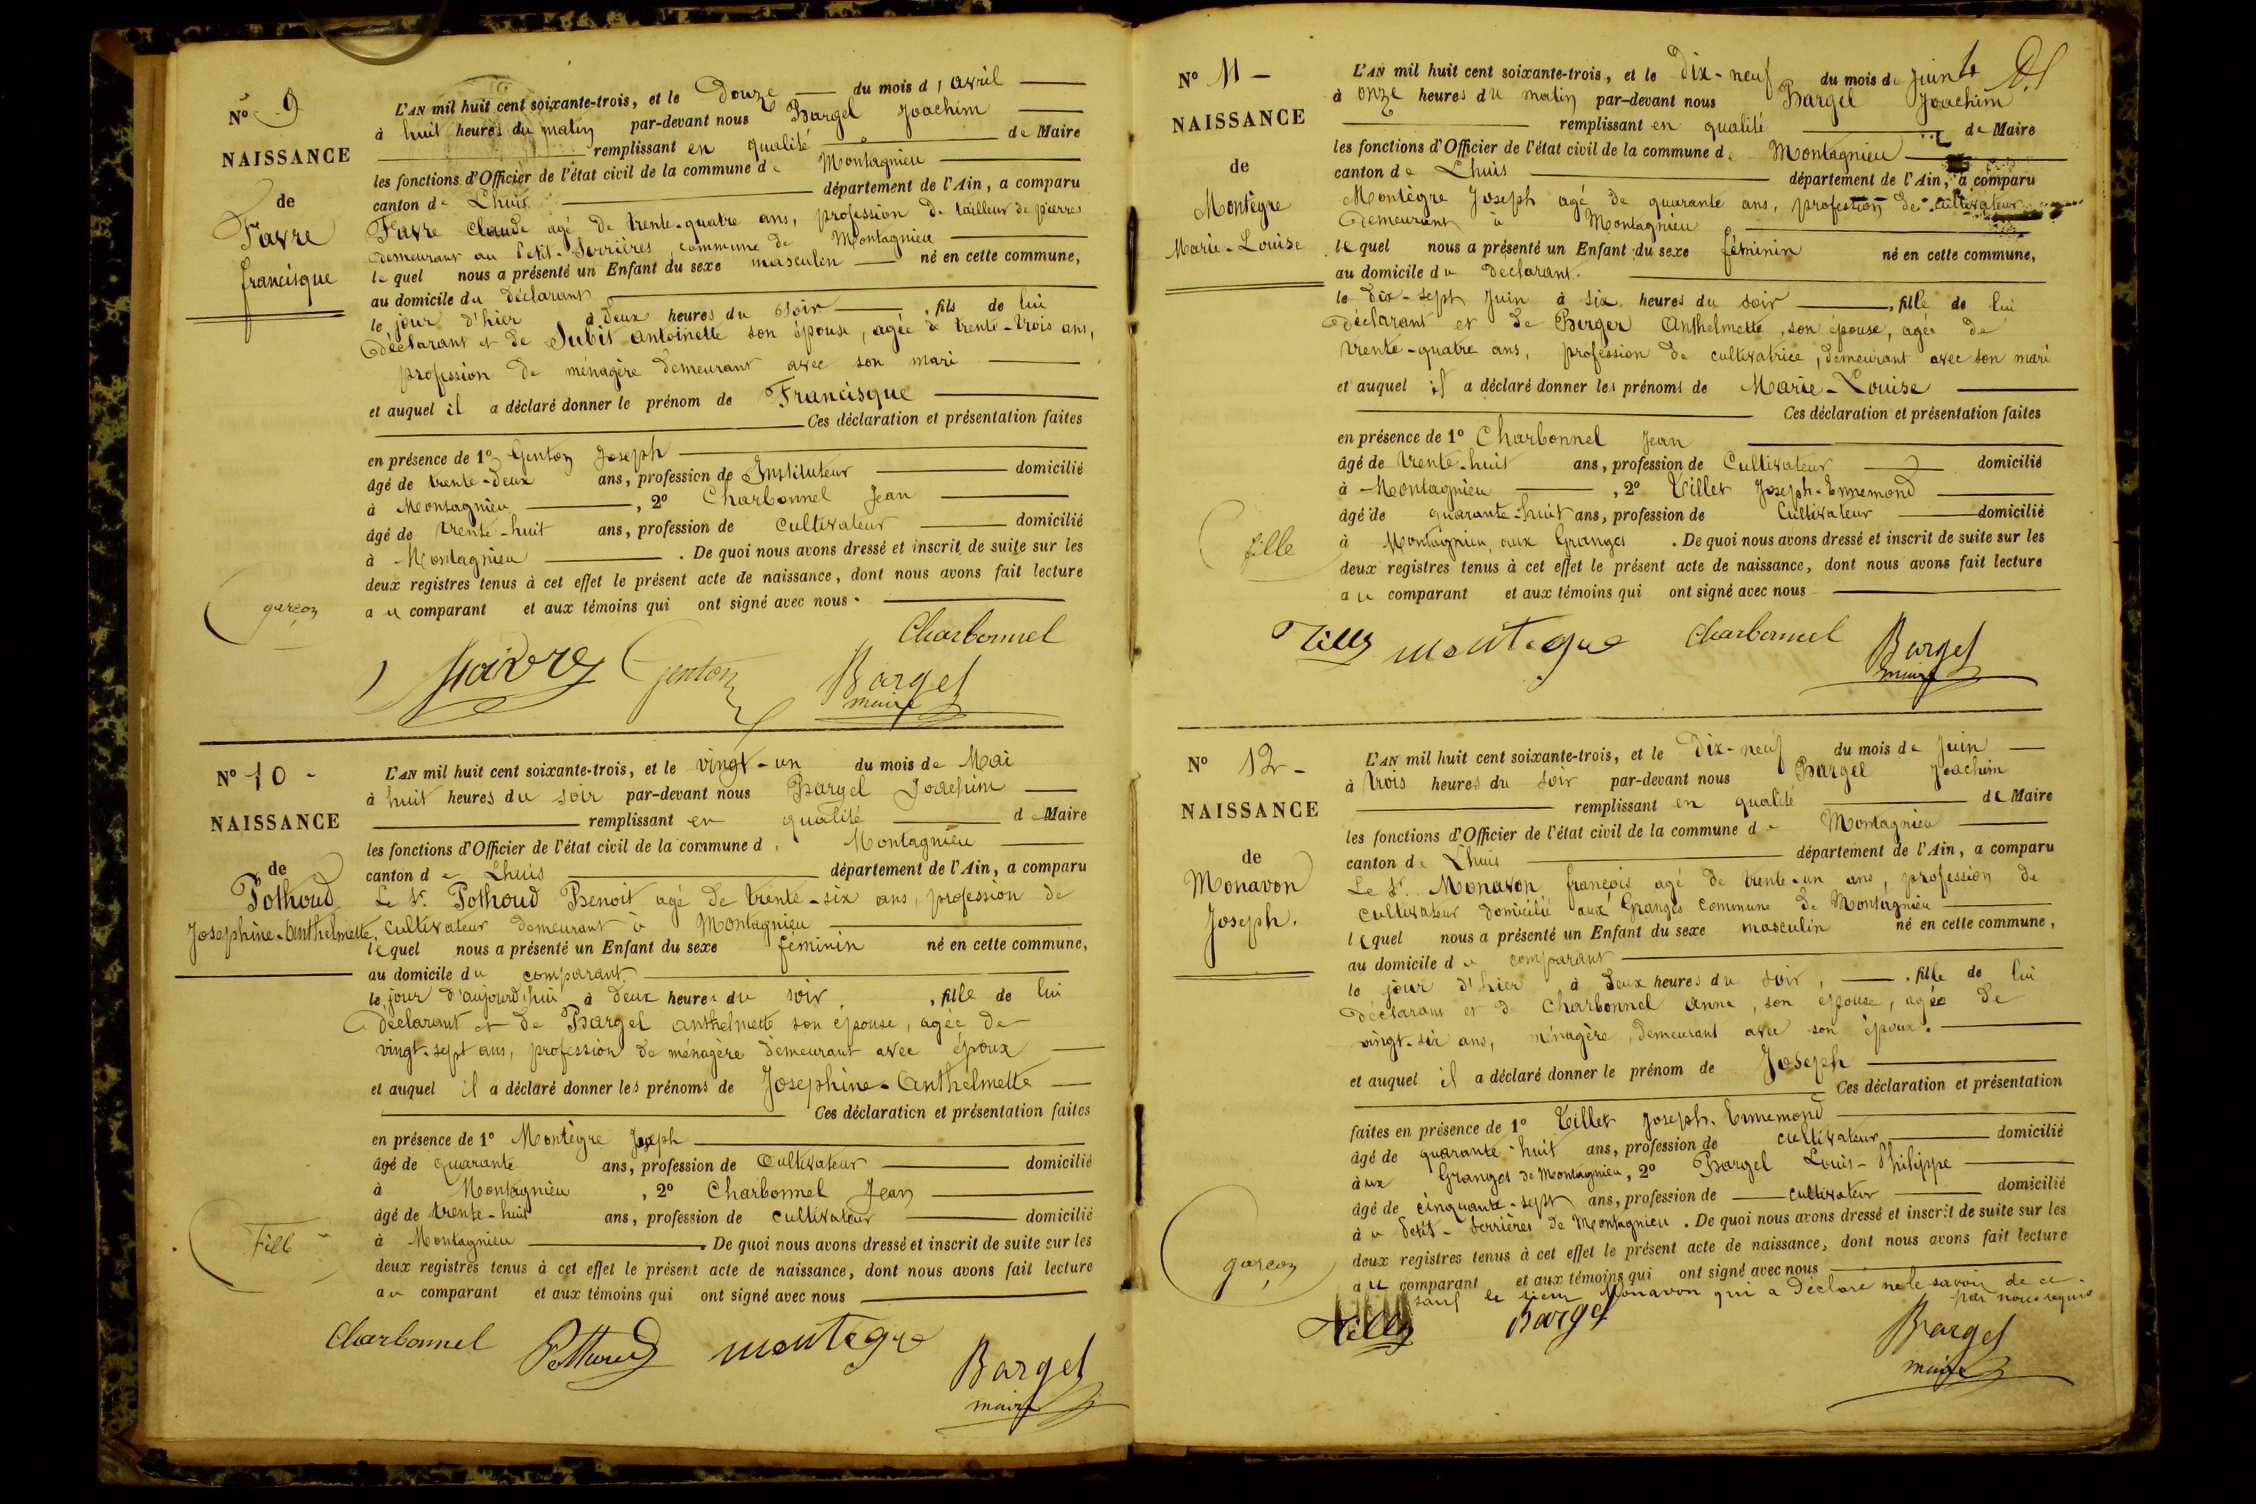 N° 9
NAISSANCE
de
Favre
francisque
garçon
L'AN mil huit cent soixante-trois, et le Douze du mois d'avril
à huit heures du matin par-devant nous Bargel Joachim
remplissant en qualité de Maire
les fonctions d'Officier de l'état civil de la commune de Montagnieu
canton de Lhuis département de l'Ain, a comparu
Favre Claude agé de trente-quatre ans, profession de tailleur de pierres
demeurant au Petit-Serrières, commune de Montagnieu
lequel nous a présenté un Enfant du sexe masculin né en cette commune,
au domicile du déclarant
le jour d'hier à deux heures du soir, fils de lui
déclarant et de Subit antoinette son épouse, agée de trente-trois ans,
profession de ménagère demeurant avec son mari
et auquel il a déclaré donner le prénom de Francisque
Ces déclaration et présentation faites
en présence de 1° Genton Joseph
âgé de trente-deux ans, profession de Instituteur domicilié
à Montagnieu, 2° Charbonnel Jean
âgé de trente-huit ans, profession de cultivateur domicilié
à Montagnieu. De quoi nous avons dressé et inscrit de suite sur les
deux registres tenus à cet effet le présent acte de naissance, dont nous avons fait lecture
au comparant et aux témoins qui ont signé avec nous.
Charbonnel
Favre Genton Bargel
maire
N° 10
NAISSANCE
de
Pothoud
Josephine-Anthelmette
Fille
L'AN mil huit cent soixante-trois, et le vingt-un du mois de Mai
à huit heures du soir par-devant nous Bargel Joachim
remplissant en qualité de Maire
les fonctions d'Officier de l'état civil de la commune de Montagnieu
canton de Lhuis département de l'Ain, a comparu
Le Sr. Pothoud Benoit agé de trente-six ans, profession de
cultivateur demeurant à Montagnieu
lequel nous a présenté un Enfant du sexe féminin né en cette commune,
au domicile du comparant
le jour d'aujourd'hui à deux heures du soir, fille de lui
déclarant et de Bargel anthelmette son épouse, agée de
vingt-sept ans, profession de ménagère demeurant avec époux
et auquel il a déclaré donner les prénoms de Josephine-Anthelmette
Ces déclaration et présentation faites
en présence de 1° Montègre Joseph
âgé de quarante ans, profession de Cultivateur domicilié
à Montagnieu, 2° Charbonnel Jean
âgé de trente-huit ans, profession de cultivateur domicilié
à Montagnieu. De quoi nous avons dressé et inscrit de suite sur les
deux registres tenus à cet effet le présent acte de naissance, dont nous avons fait lecture
au comparant et aux témoins qui ont signé avec nous
Charbonnel Pothoud montegre Bargel
maire
N° 11
NAISSANCE
de
Montègre
Marie-Louise
fille
L'AN mil huit cent soixante-trois, et le dix-neuf du mois de Juin
à onze heures du matin par-devant nous Bargel Joachim
remplissant en qualité de Maire
les fonctions d'Officier de l'état civil de la commune de Montagnieu
canton de Lhuis département de l'Ain, a comparu
Montègre Joseph agé de quarante ans, profession de cultivateur
demeurant à Montagnieu
lequel nous a présenté un Enfant du sexe féminin né en cette commune,
au domicile du declarant.
le dix-sept Juin à six heures du soir, fille de lui
déclarant et de Berger Anthelmette, son épouse, agée de
trente-quatre ans, profession de cultivatrice, demeurant avec son mari
et auquel il a déclaré donner les prénoms de Marie-Louise
Ces déclaration et présentation faites
en présence de 1° Charbonnel Jean
âgé de trente-huit ans, profession de Cultivateur domicilié
à Montagnieu, 2° Tillet Joseph-Ennemond
âgé de quarante-huit ans, profession de Cultivateur domicilié
à Montagnieu, aux Granges. De quoi nous avons dressé et inscrit de suite sur les
deux registres tenus à cet effet le présent acte de naissance, dont nous avons fait lecture
au comparant et aux témoins qui ont signé avec nous
montegre Charbonnel Bargel
maire
N° 12
NAISSANCE
de
Monavon
Joseph.
garçon
L'AN mil huit cent soixante-trois, et le Dix-neuf du mois de Juin
à trois heures du soir par-devant nous Bargel Joachim
remplissant en qualité de Maire
les fonctions d'Officier de l'état civil de la commune de Montagnieu
canton de Lhuis département de l'Ain, a comparu
Le Sr. Monavon françois agé de trente-un ans, profession de
cultivateur domicilié aux Granges commune de Montagnieu
lequel nous a présenté un Enfant du sexe masculin né en cette commune,
au domicile du comparant
le jour d'hier à deux heures du soir, fille de lui
déclarant et de Charbonnel anne, son épouse, agée de
vingt-six ans, ménagère, demeurant avec son époux.
et auquel il a déclaré donner le prénom de Joseph
Ces déclaration et présentation
faites en présence de 1° Tillet Joseph-Ennemond
âgé de quarante-huit ans, profession de cultivateur domicilié
aux Granges de Montagnieu, 2° Bargel Louis-Philippe
âgé de cinquante-sept ans, profession de cultivateur domicilié
au Petit-Serrières de Montagnieu. De quoi nous avons dressé et inscrit de suite sur les
deux registres tenus à cet effet le présent acte de naissance, dont nous avons fait lecture
au comparant et aux témoins qui ont signé avec nous
sauf le sieur Monavon qui a déclaré ne le savoir de ce
par nous requis
Bargel Bargel
maire